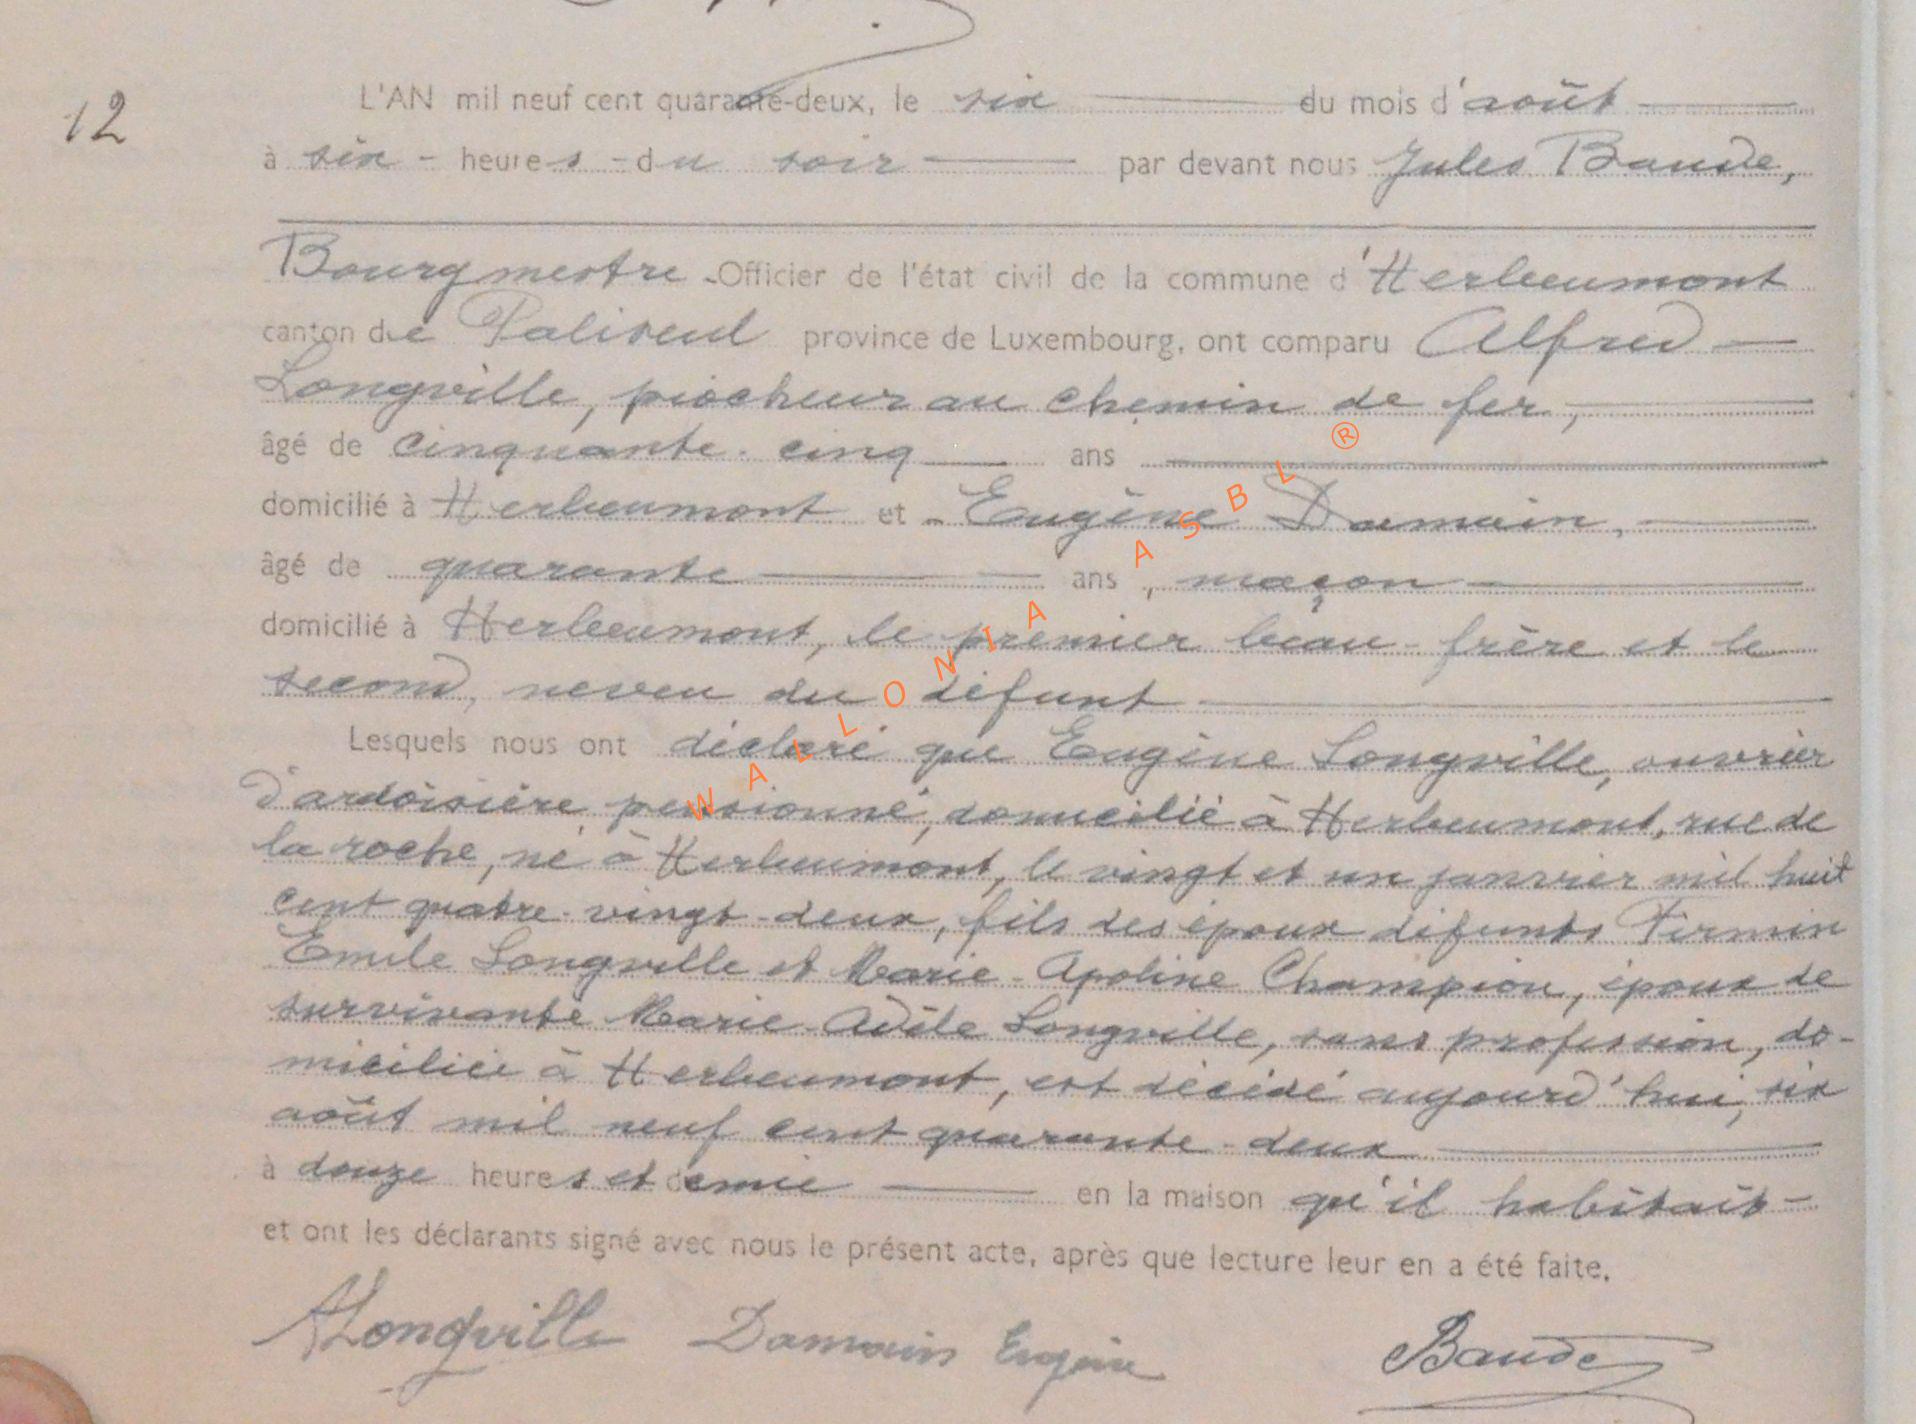 12
L'AN mil neuf cent quarante-deux, le six du mois d'août
à six - heures - du soir par devant nous Jules Baude,
Bourgmestre - Officier de l'état civil de la commune d'Herbeumont
canton de Paliseul province de Luxembourg, ont comparu Alfred
Longville, piocheur au chemin de fer,
âgé de cinquante-cinq ans
domicilié à Herbeumont et - Eugène Damain,
âgé de quarante ans, maçon
domicilié à Herbeumont, le premier beau-frère et le
second, neveu du défunt
Lesquels nous ont déclaré que Eugène Longville, ouvrier
d'ardoisière pensionné, domicilié à Herbeumont, rue de
la roche, né à Herbeumont, le vingt et un janvier mil huit
cent quatre-vingt-deux, fils des époux défunts Firmin
Emile Longville et Marie-Apoline Champion, époux de
survivante Marie-Adèle Longville, sans profession, do-
miciliée à Herbeumont, est décédé aujourd'hui, six
août mil neuf cent quarante-deux
à douze heures et demie en la maison qu'il habitait -
et ont les déclarants signé avec nous le présent acte, après que lecture leur en a été faite.
ALongville Damain Eugène Baude
WALLONIA ASBL ®